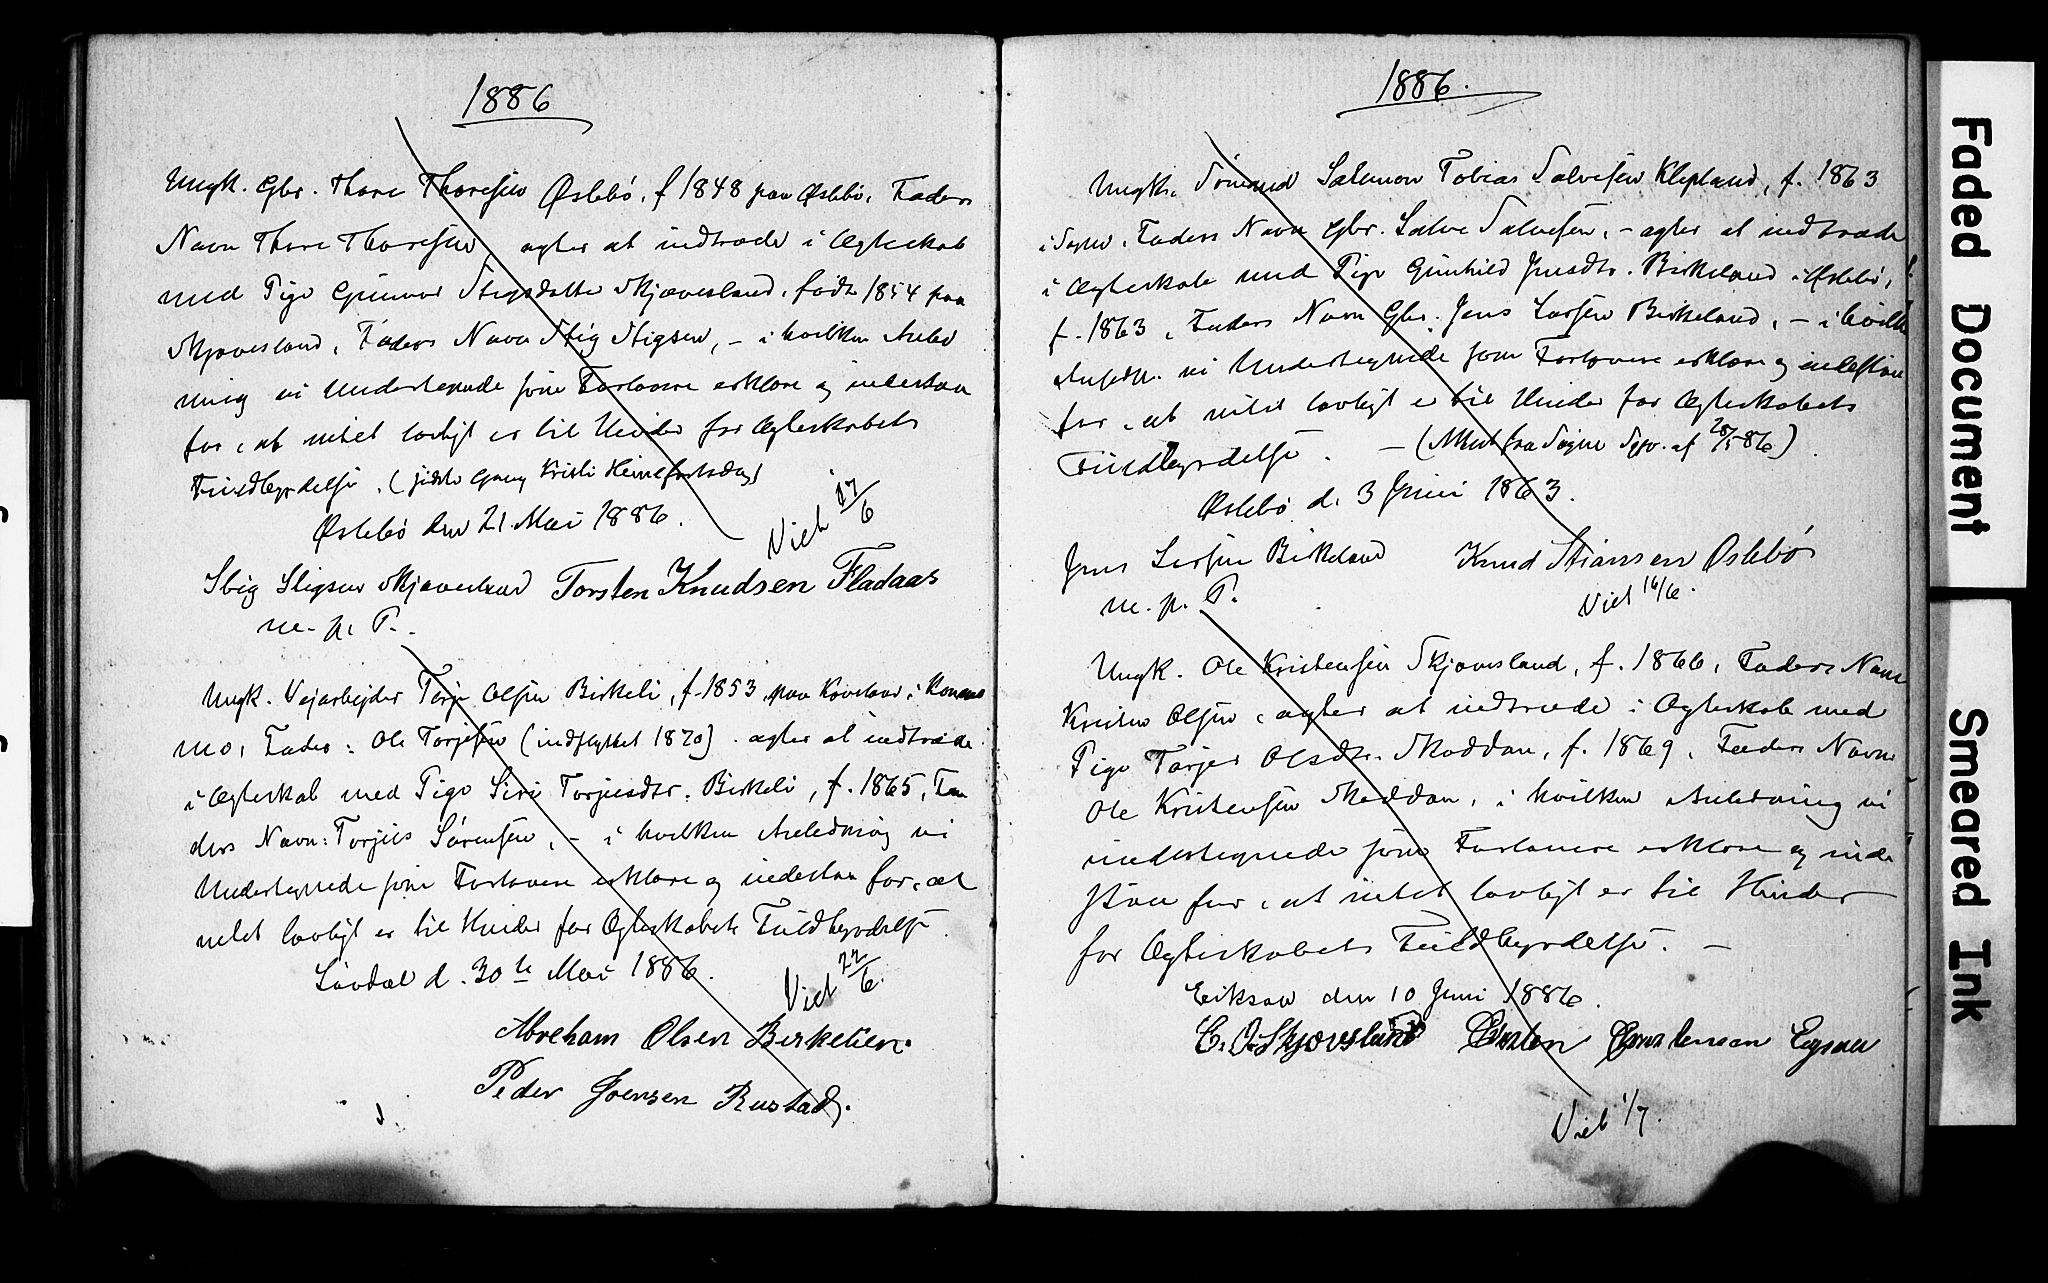 1886
Ungk. Gbr. Thore Thoresen Øslebø, f 1848 paa Øslebø, Faders
Navn Thore Thoresen, agter at indtræde i Ægteskab
med Pige Gunvor Stigsdatter Skjævesland, født 1854 paa
Skjævesland, Faders Navn Stig Stigsen, – i hvilken Anled
ning vi Undertegnede som Forlovere erklære og indestaa
for, at intet lovligt er til Hinder for Ægteskabets
Fuldbyrdelse. (sidste Gang Kristi Himmelfartsdag)
Øslebø den 21 Mai 1886.
Viet 17/6
Stig Stigsen Skjævesland Torsten Knudsen Fladaas
m. p. P.
Ungk. Vejarbejder Terje Olsen Birkeli, f. 1853 paa
mo, Fader: Ole Torjesen (indflyttet 1870) agter at indtræde
i Ægteskab med Pige Siri Torjusdtr. Birkeli, f. 1865, Fa
ders Navn: Torjus Sørensen, – i hvilken Anledning vi
Undertegnede som Forlovere erklære og indestaa for, at
intet lovligt er til Hinder for Ægteskabets Fuldbyrdelse.
Løvdal d. 30te Mai 1886.
Viet 22/6.
Abreham Olsen Birkelien.
Peder Joensen Rustad.
1886.
Ungk. Sømand Salemon Tobias Salvesen Klepland, f. 1863
i Søgne, Faders Navn Gbr. Salve Salvesen, – agter at indtræde
i Ægteskab med Pige Gunhild Jensdtr. Birkeland i Øslebø,
f. 1863, Faders Navn Gbr. Jens Larsen Birkeland, – i hvilk
Anledn. vi Undertegnede som Forlovere erklære og indestaa
for, at intet lovligt er til Hinder for Ægteskabets
Fuldbyrdelse. – (Attest fra Søgne Sgpr. af 28/5 86)
Øslebø d. 3 Juni 1863.
Jens Larsen Birkeland Knud Stiansen Øslebø
m. p. P. Viet 16/6.
Ungk. Ole Kristensen Skjævesland, f. 1866, Faders Navn
Kristen Olsen, agter at indtræde i Ægteskab med
Pige Torjer Olsdtr. Moddan, f. 1869, Faders Navn
Ole Kristensen Moddan, i hvilken Anledning vi
undertegnede som Forlovere erklære og inde
staa for, at intet lovligt er til Hinder
for Ægteskabets Fuldbyrdelse. –
den 10 Juni 1886.
C. O. Skjøvsland
Viet 1/7.
Faded Document
Smeared Ink